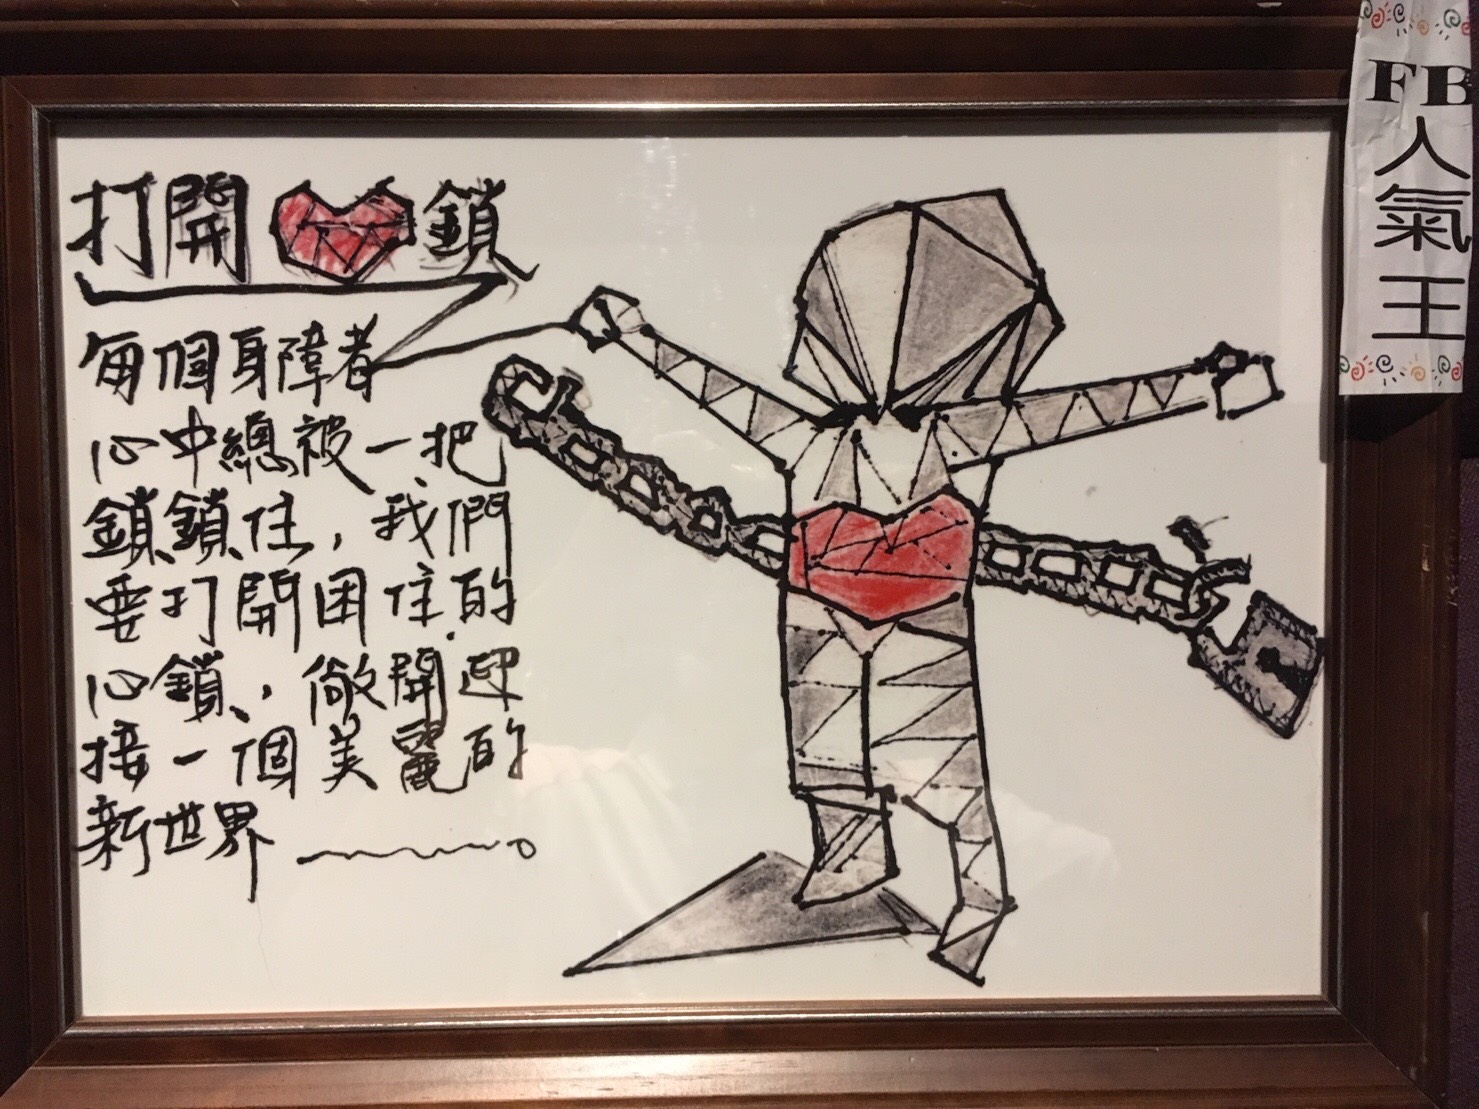 打開 鎖
每個身障者
心中總被一把
鎖鎖住，我們
要打開困住的
心鎖，敞開迎
接一個美麗的
新世界
FB
人氣王